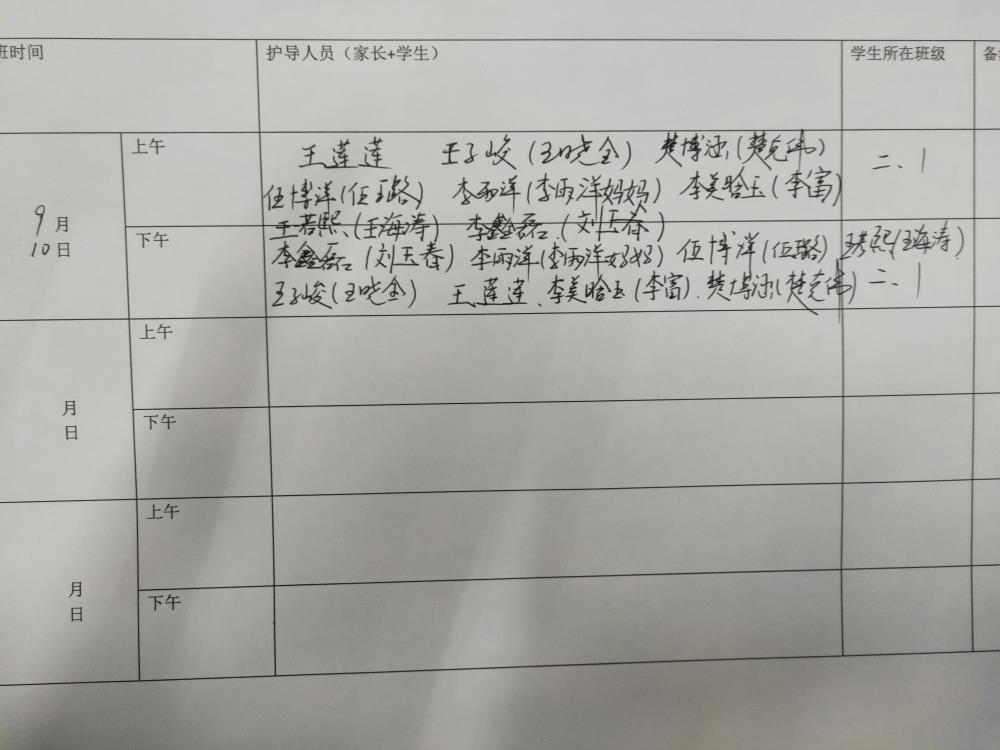 班时间 护导人员（家长+学生） 学生所在班级 备
9月10日 上午 王莲莲 王子峻(王晓全) 楚博涵(楚克伟)
伍博洋(伍璐) 李雨洋(李雨洋妈妈) 李美晗玉(李富) 二、1
王若熙(王海涛) 李鑫磊(刘玉春)
下午 李鑫磊(刘玉春) 李雨洋(李雨洋妈妈) 伍博洋(伍璐) 王若熙(王海涛)
王子峻(王晓全) 王莲莲、李美晗玉(李富)、楚博涵(楚克伟) 二、1
月日 上午
下午
月日 上午
下午